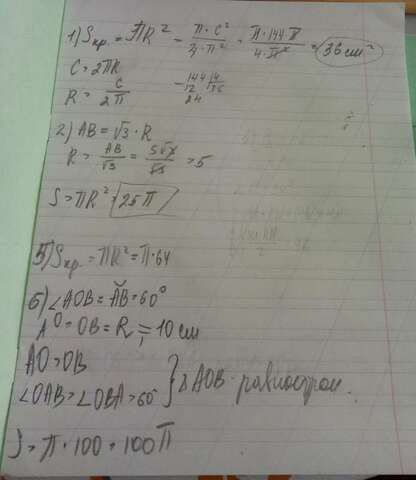 1) Sкр. = ПR² = П·C²/4·П² = П·144·П/4·П² = 36 см²
C = 2ПR
R = C/2П
-144 | 4
12 | 36
24
2) AB = √3 · R
R = AB/√3 = 5√3/√3 = 5
S = ПR² = 25П
5) Sкр. = ПR² = П·64
6) ∠AOB = ĂB = 60°
AO = OB = R = 10 см
AO = OB
∠OAB = ∠OBA = 60° } ΔAOB - равностron.
S = П · 100 = 100П